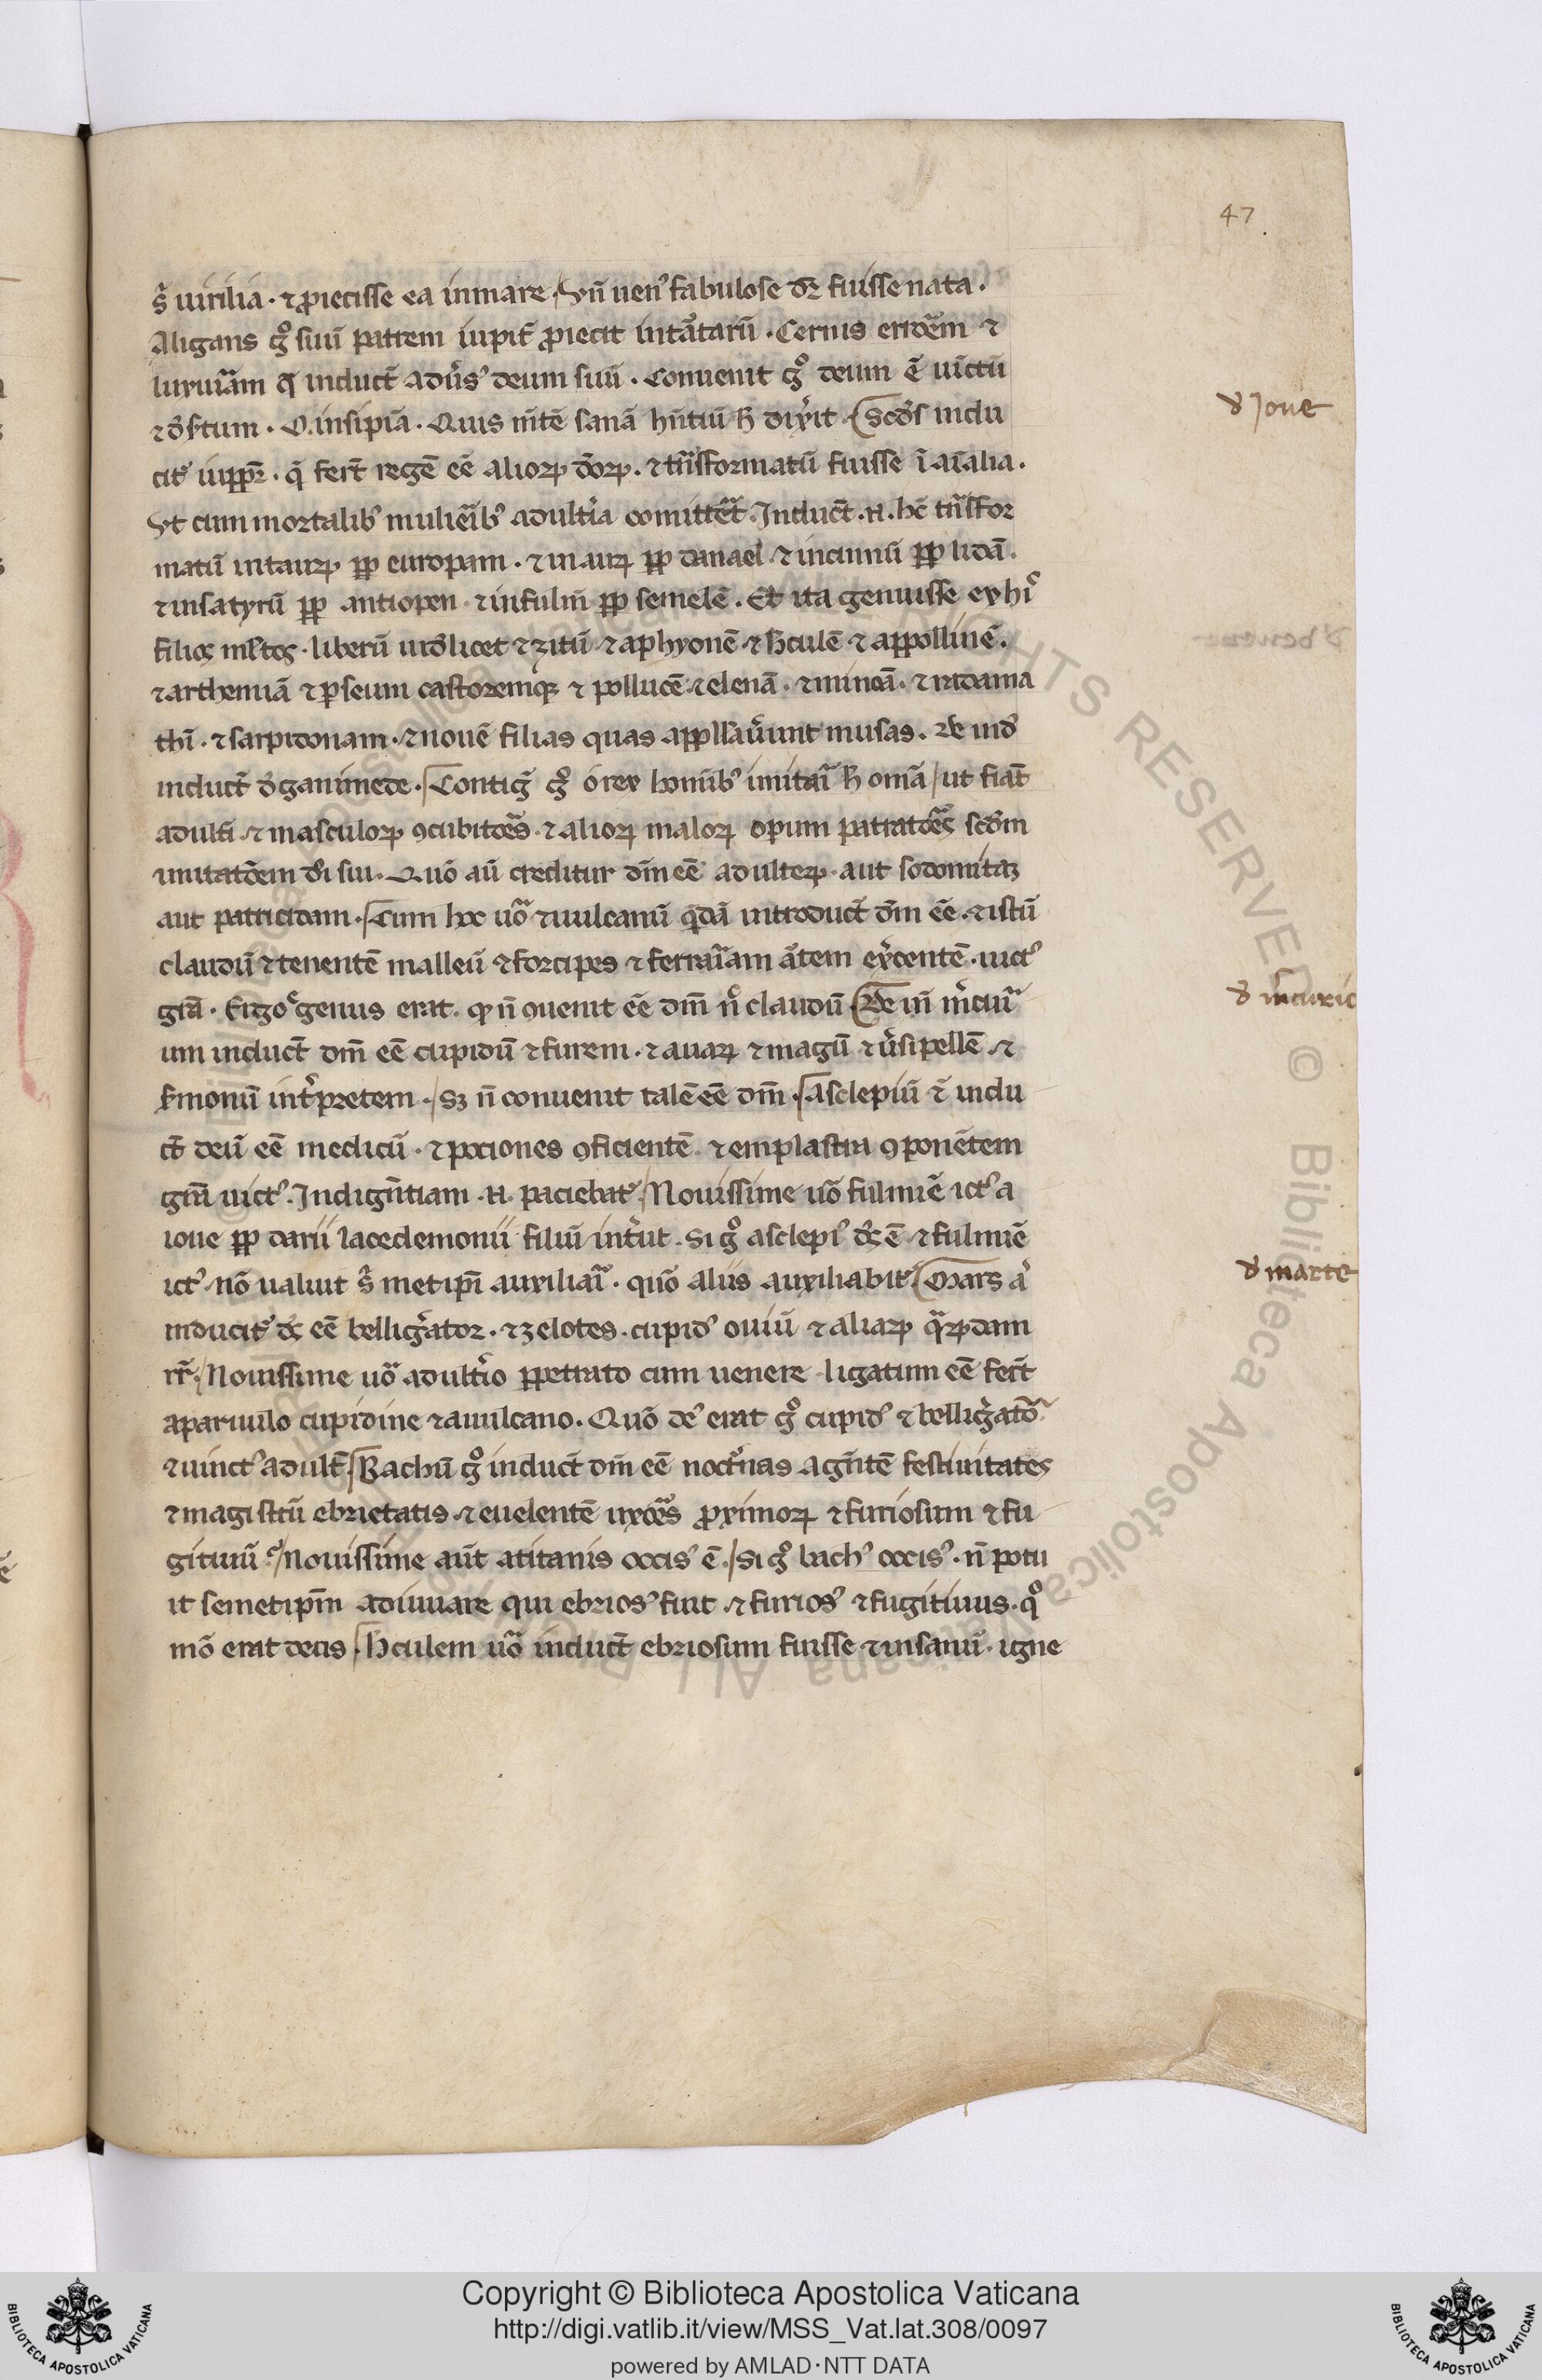 47
s̄ uirilia · ⁊ ꝓiecisse ea in mare · Vn̄ uenꝰ fabulose dr̄ fuisse nata ·
Aligans gͦ suū patrem iupit̄ ꝓiecit in tartarū · Cernis
luxuriam q̄ induct̄ aduersꝰ deum suū · Conuenit gͦ deum ē uictū
O insipiā · Quis mētē sanā dixit · Scd̄s indu
d Joue
citꝰ iuppr̄ · q̄ fert̄ regē eē alioꝝ deoꝝ · ⁊ tn̄sformatū fuisse ī aīalia ·
Vt cum mortalibꝰ mulieribꝰ adult̄ia comitteret · Induct̄ · n̄ · hc̄ tn̄sfor
matū in tauꝝ ꝓp europam · ⁊ in auꝝ ꝓp danael · ⁊ in cinnū ꝓp lidā ·
⁊ in satyrū ꝓp antiopen · ⁊ in fulm̄ ꝓp semelē · Et ita genuisse ex hiꝰ
filios ml̄tos · liberū uidelicet ⁊ zitū ⁊ aphyonē ⁊ h̄culē ⁊ appollinē ·
⁊ arthemiā ⁊ ꝑseum castoremqꝫ ⁊ pollucē ⁊ elenā · ⁊ mineā · ⁊ radama
thī · ⁊ sarpidonam · ⁊ nouē filias quas appllauerunt musas ·
induct̄ d̄ ganimede · Contiḡ gͦ o rex hominibꝰ imitari h̄ omā / ut fiāt
adult̄i ⁊ masculoꝝ ꝯcubitores · ⁊ alioꝝ maloꝝ oꝑum patratores scd̄m
imitatōem dei sui · Quō aū creditur dm̄ eē adulteꝝ · aut sodomitaꝫ
aut patricidam · Cum hoc uō ⁊ uulcanū q̄dā introduct̄ dm̄ eē · ⁊ istū
claudū ⁊ tenentē malleū ⁊ forcipes ⁊ ferrariam artem exercentē · uictꝰ
grā · Ergo egenus erat · qꝫ n̄ ꝯuenit eē dm̄ nͦ claudū · De in m̄curi
d m̄curio
um induct̄ dm̄ eē cupidū ⁊ furem · ⁊ auaꝝ ⁊ magū ⁊ u̓sipellē · ⁊
s̄monū int̓pretem · / Sꝫ n̄ conuenit talē eē dm̄ · Asclepiū ⁊ indu
ct̄ deū eē medicū · ⁊ pociones ꝯficientē · ⁊ emplastra ꝯponētem
grā uictꝰ · Indigētiam · n̄ · paciebatꝰ · Nouissime uō fulmīe ictꝰ a
ioue ꝓp darii lacedemonii filiū int̓iit · Si gͦ asclepiꝰ ds̄ ē · ⁊ fulmīe
ictꝰ nō ualuit s̄ metip̄i auxiliari · quō aliis auxiliabitꝰ · Mars
d marte
inducitꝰ ds̄ eē belligerator · ⁊ zelotes · cupidꝰ ouiū ⁊ aliaꝝ q̄rūdam
rr̄ / Nouissime uō adult̓io ꝑpetrato cum uenere ligatum eē fert̄
a paruulo cupidine ⁊ a uulcano · Quō deꝰ erat gͦ cupidꝰ ⁊ belligerator
⁊ uinctꝰ adult̄ · Bachū gͦ induct̄ dm̄ eē noct̓nas agentē festiuitates
⁊ magistrū ebrietatis ⁊ euelentē uxores ꝓximoꝝ ⁊ furiosum ⁊ fu
gitiuū / Nouissime aūt a titanis occisꝰ ē · / Si gͦ bachꝰ occisꝰ · n̄ potu
it semetip̄m adiuuare qui ebriosꝰ fuit ⁊ furiosꝰ ⁊ fugitiuus · qͦ
mō erat deus · H̄culem uō induct̄ ebriosum fuisse ⁊ insanū · igne
Copyright © Biblioteca Apostolica Vaticana
http://digi.vatlib.it/view/MSS_Vat.lat.308/0097
powered by AMLAD·NTT DATA
BIBLIOTECA APOSTOLICA VATICANA
BIBLIOTECA APOSTOLICA VATICANA